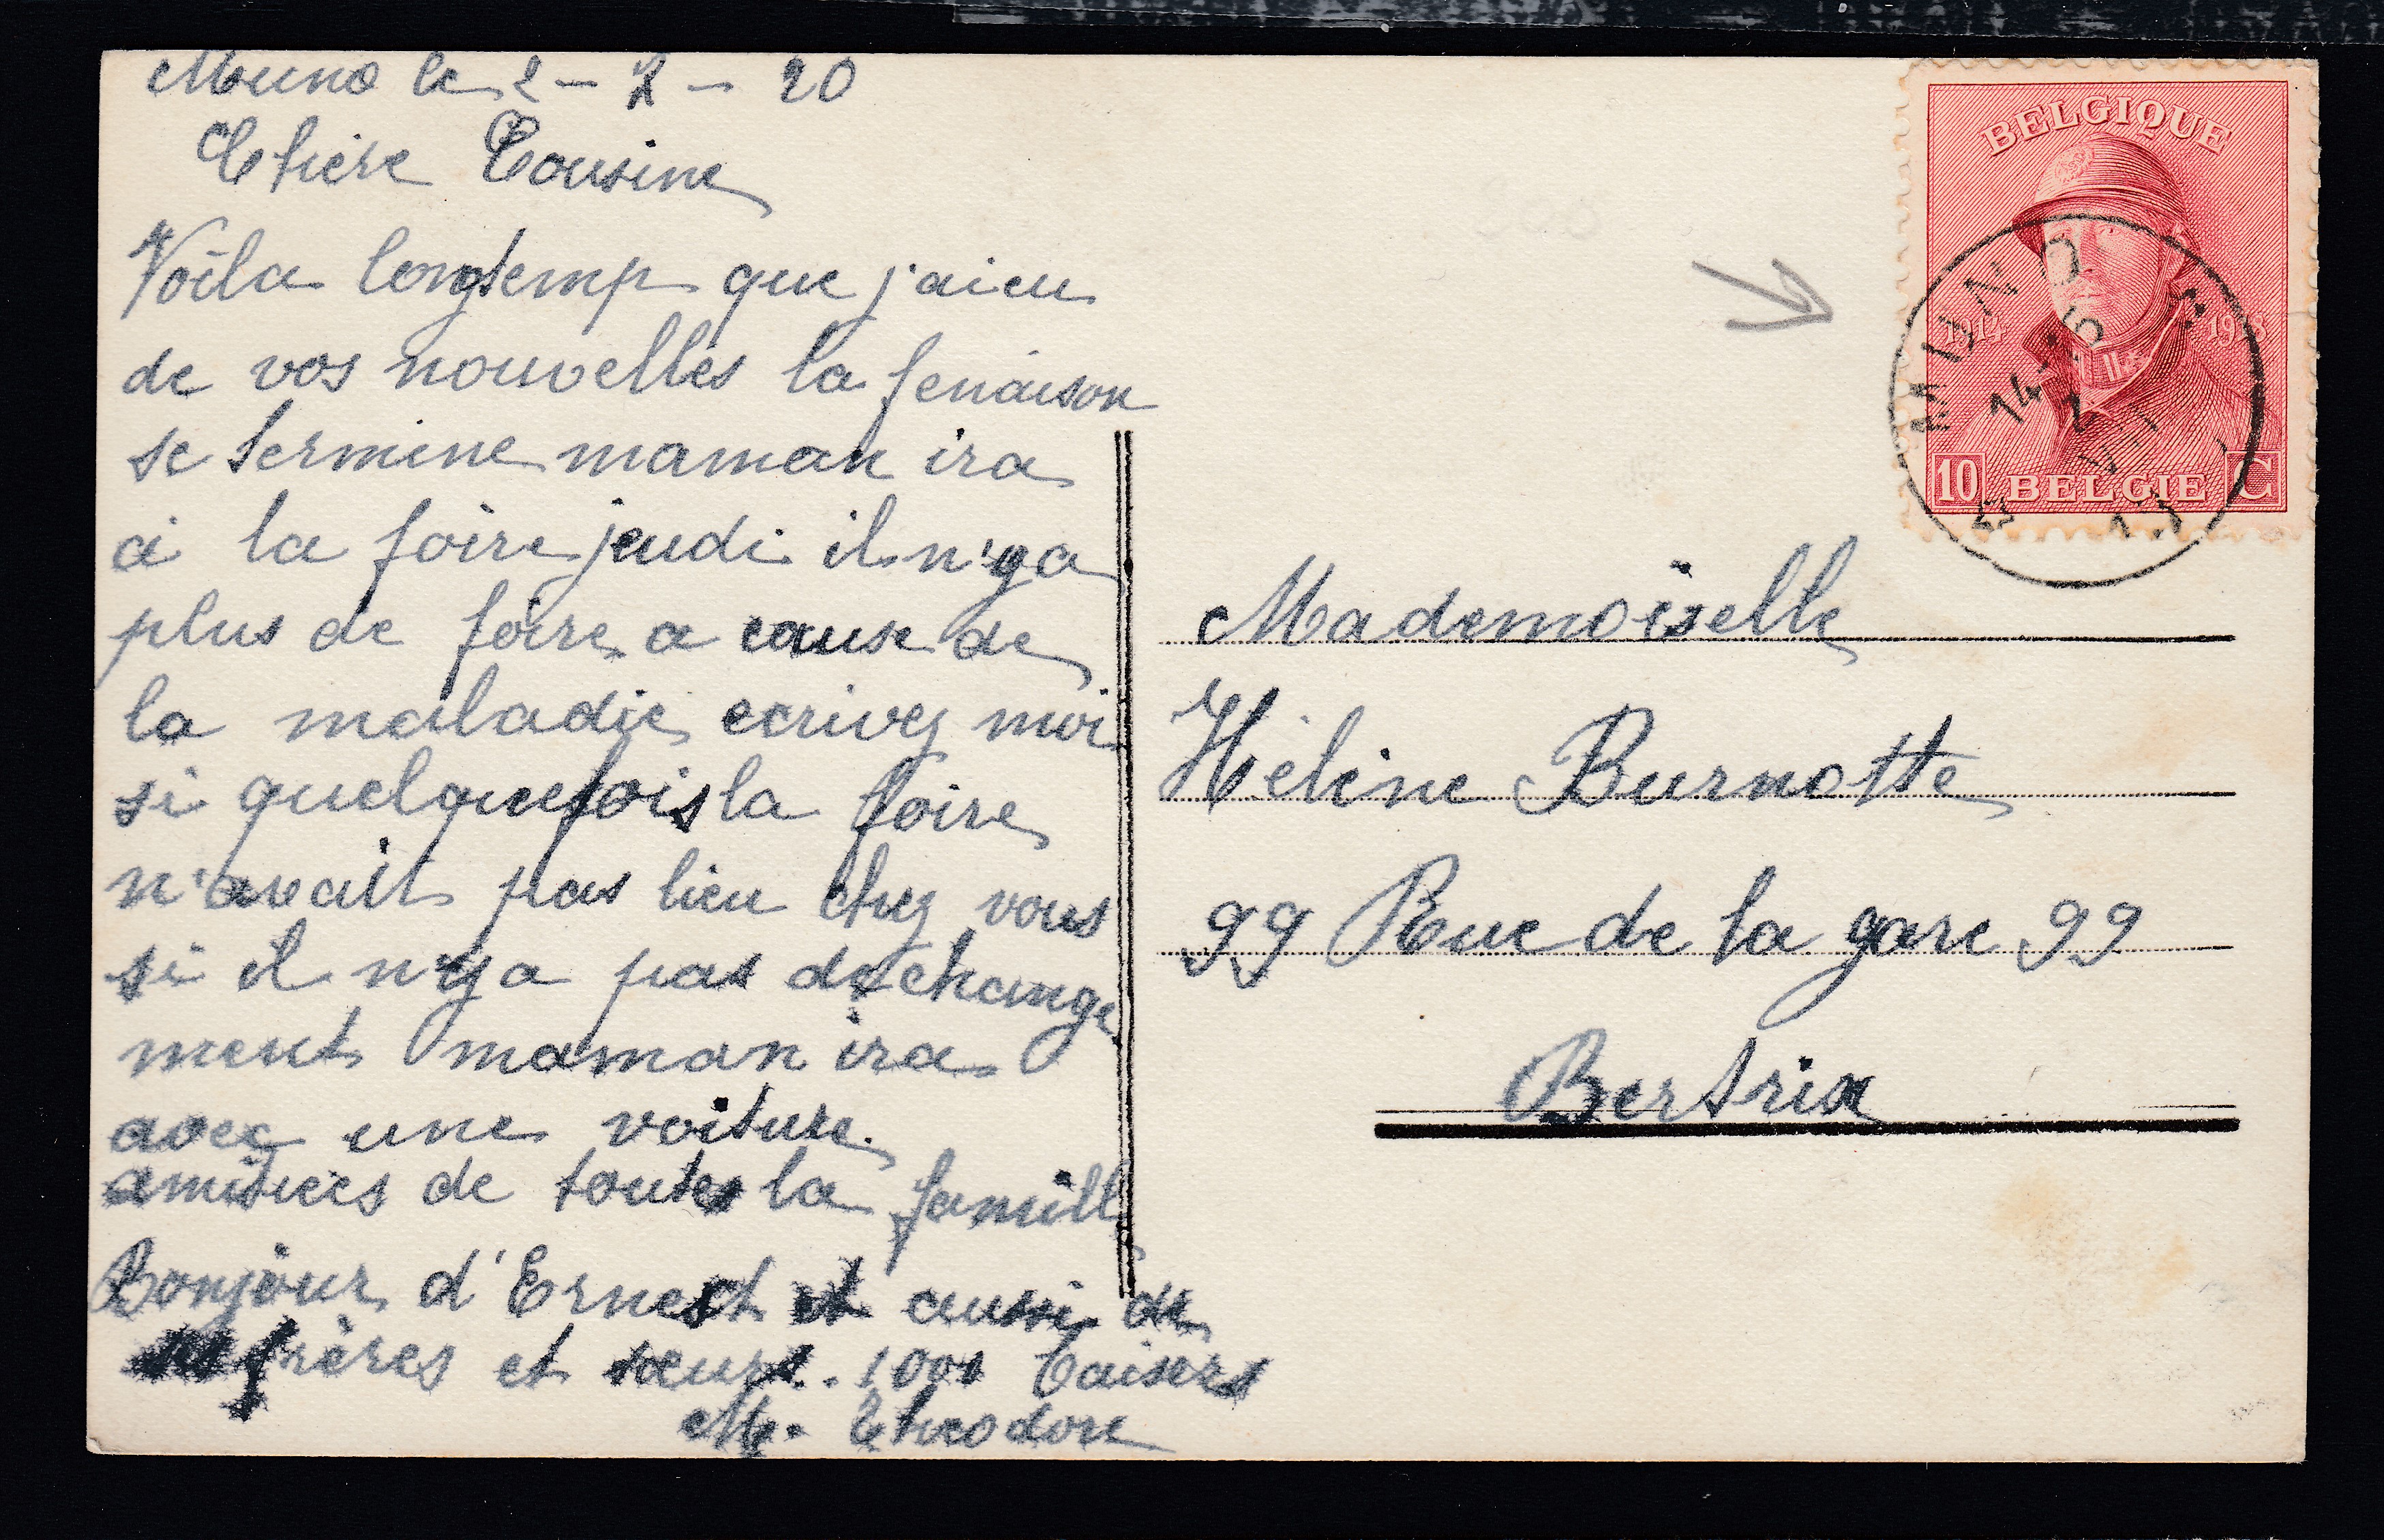 Muno le 2 - 7 - 20
Chère Cousine
Voila longtemp que j'ai eu
de vos nouvelles la fenaison
se termine maman ira
a la foire jeudi il n'ya
plus de foire a cause de
la maladie ecrivez moi
si quelquefois la foire
n'avait pas lieu chez vous
si il n'ya pas de change
ment maman ira
avec une voiture.
amitiées de toutes la famill
Bonjour d'Ernest et aussi de
frères et sœurs. 1000 baisers
M. Theodore
BELGIQUE
1914 1918
10 BELGIE C
MUNO
14-15
2 VII
Mademoiselle
Hélène Burnotte
99 Rue de la gare 99
Bertrix